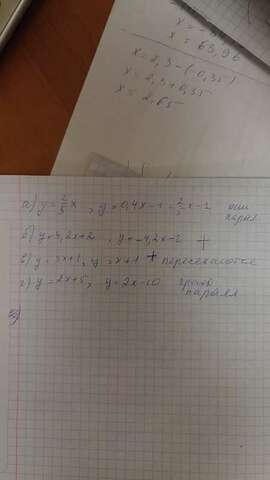 x = 63,96
x = 2,3 - (-0,35)
x = 2,3 + 0,35
x = 2,65
а) y = 2/5 x , y = 0,4x - 1 = 2/5 x - 1
парал
б) y = 4,2x + 2 , y = -4,2x - 2 +
в) y = 3x + 1, y = x + 1 + пересекаются
г) y = 2x + 5, y = 2x - 10
паралл